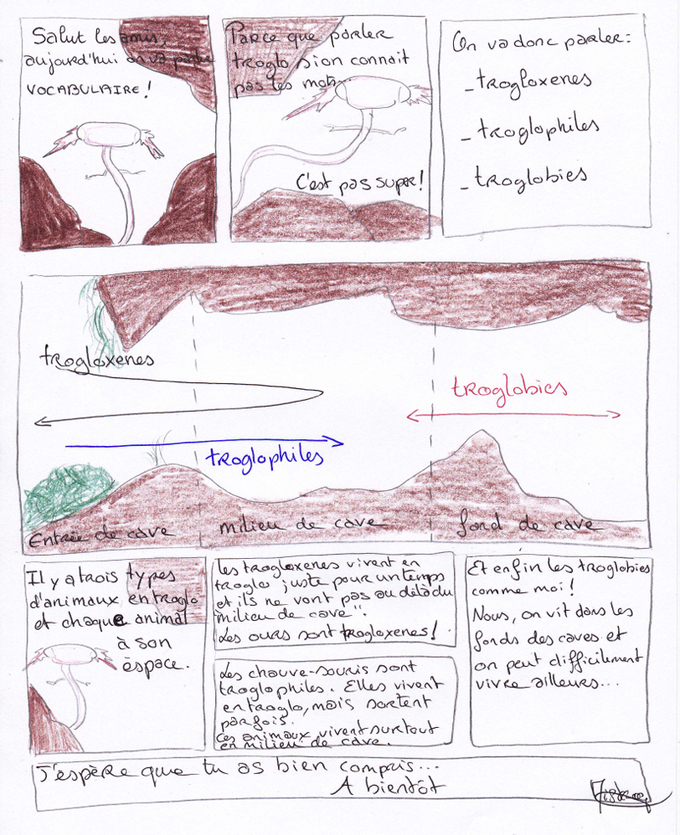 Salut les amis,
aujourd'hui on va parler
VOCABULAIRE!
Parce que parler
troglo sion connait
pas les mots...
C'est pas super!
On va donc parler:
- trogloxenes
- troglophiles
- troglobies
trogloxenes
troglobies
troglophiles
Entrée de cave
milieu de cave
fond de cave
Il y a trois types
d'animaux en troglo
et chaque animal
à son
èspace.
Les trogloxenes vivent en
troglo juste pour un temps
et ils ne vont pas au delà du
"milieu de cave".
Les ours sont trogloxenes!
Les chauve-souris sont
troglophiles. Elles vivent
en troglo, mais sortent
parfois.
Ces animaux vivent surtout
en milieu de cave.
Et enfin les troglobies
comme moi!
Nous, on vit dans les
fonds des caves et
on peut difficilement
vivre ailleurs...
J'espère que tu as bien compris...
A bientôt